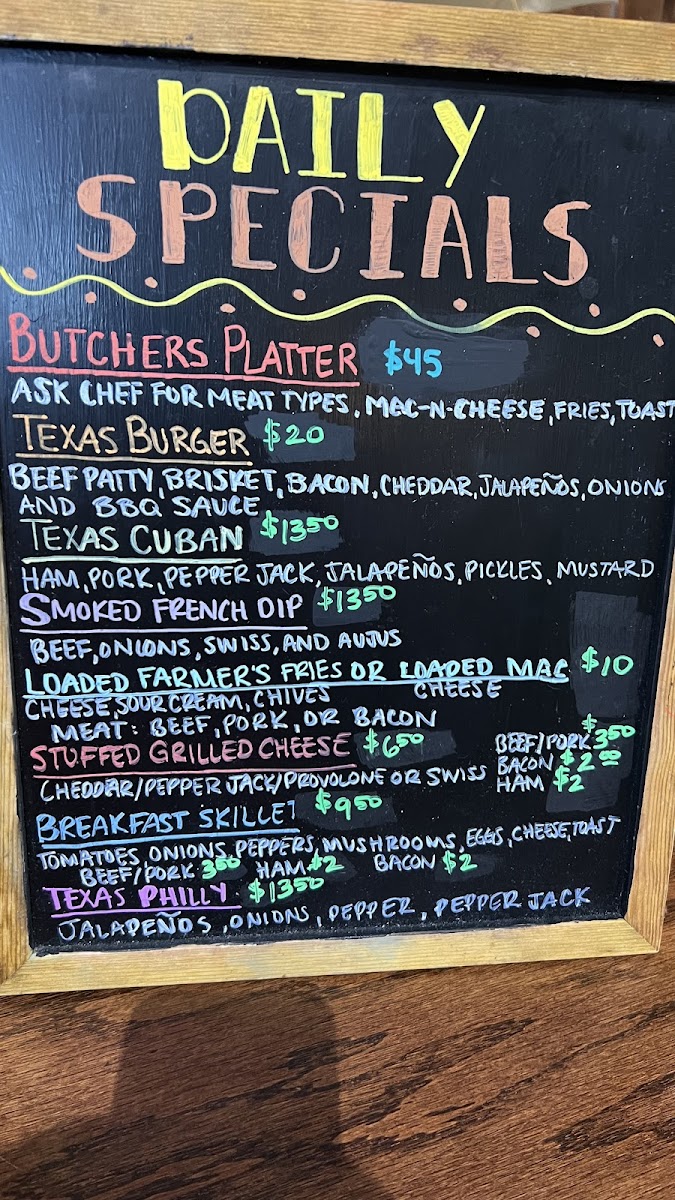 DAILY
SPECIALS
BUTCHERS PLATTER $45
ASK CHEF FOR MEAT TYPES, MAC-N-CHEESE, FRIES, TOAST
TEXAS BURGER $20
BEEF PATTY, BRISKET, BACON, CHEDDAR, JALAPEÑOS, ONIONS
AND BBQ SAUCE
TEXAS CUBAN $1350
HAM, PORK, PEPPER JACK, JALAPEÑOS, PICKLES, MUSTARD
SMOKED FRENCH DIP $1350
BEEF, ONIONS, SWISS, AND AUJUS
LOADED FARMER'S FRIES OR LOADED MAC $10
CHEESE SOUR CREAM, CHIVES CHEESE
MEAT: BEEF, PORK, OR BACON
STUFFED GRILLED CHEESE $650 BEEF/PORK $350
CHEDDAR/PEPPER JACK/PROVOLONE OR SWISS BACON $2.00
HAM $2
BREAKFAST SKILLET $950
TOMATOES, ONIONS, PEPPERS, MUSHROOMS, EGGS, CHEESE, TOAST
BEEF/PORK 350 HAM $2 BACON $2
TEXAS PHILLY $1350
JALAPEÑOS, ONIONS, PEPPER, PEPPER JACK